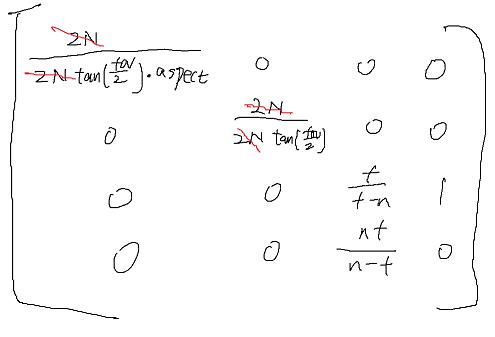 2N / 2N tan(fov/2)·aspect 0 0 0
0 2N / 2N tan(fov/2) 0 0
0 0 f / f-n 1
0 0 nf / n-f 0